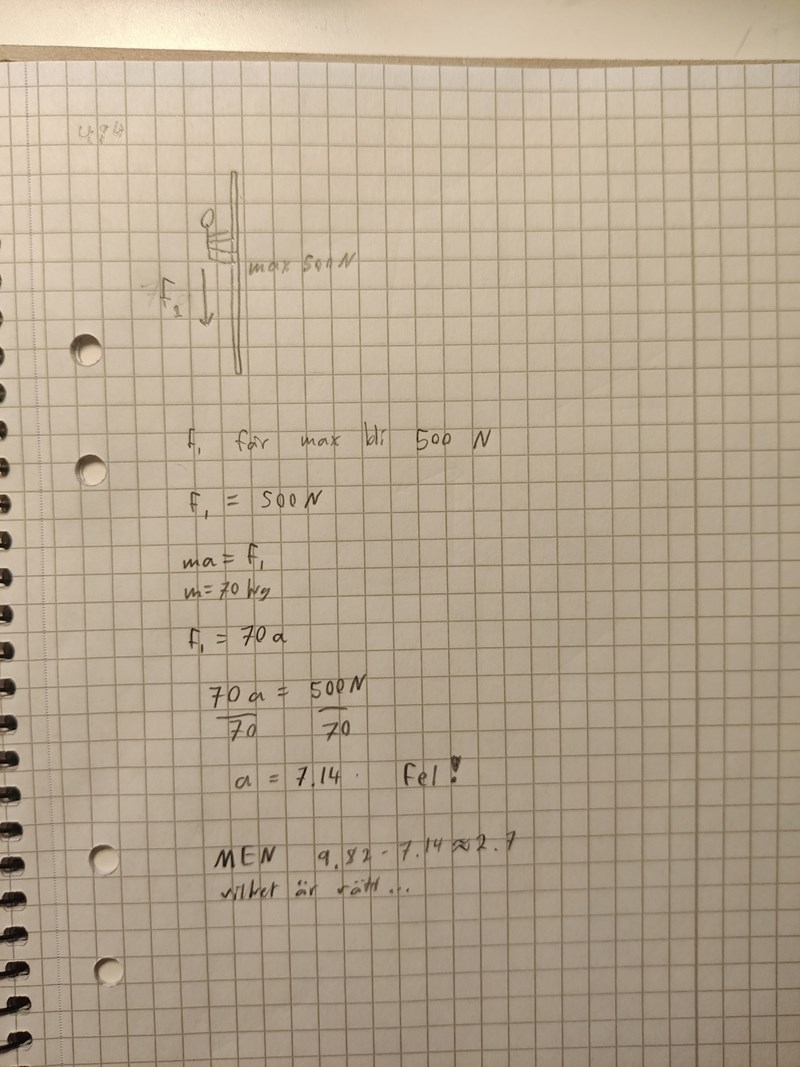 max 500N
F₁
F₁ får max bli 500 N
F₁ = 500N
ma = F₁
m = 70 kg
F₁ = 70a
70a = 500N
70 70
a = 7.14 . Fel!
MEN 9.82 - 7.14 ≈ 2.7
vilket är rätt...